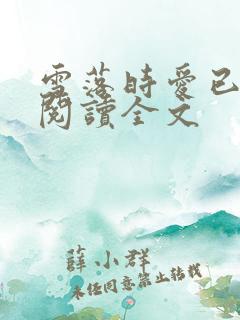 雪落時愛已
閱讀全文
薛小群
未經同意禁止轉載